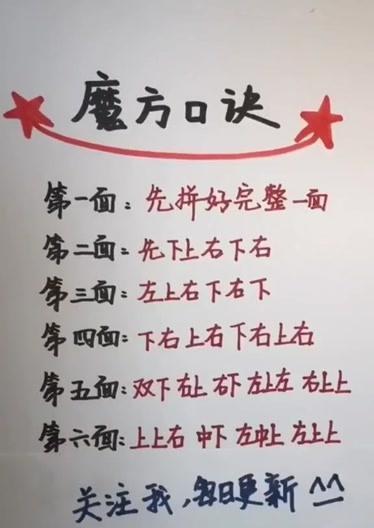 魔方口诀
第一面：先拼好完整一面
第二面：先下上右下右
第三面：左上右下右下
第四面：下右上右下右上右
第五面：双下右上右下左上左右上上
第六面：上上右中下左中上左上上
关注我，每日更新^^